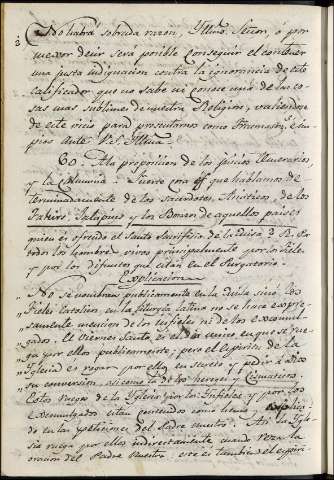 No habrá sobrada razon, Yllmo. Señor, ó por
mejor decir será posible conseguir el contener
una justa indignacion contra la ignorancia de este
calificador que no sabe ni conoce una de las co-
sas mas sublimes de nuestra Religion, valiendose
de este vicio para presentarnos como é im-
pios ante V.S. Yllma.
60. A la proposicion de los
y la Columna: fuerte cosa que hablemos de-
terminadamente de los sacerdotes, de los
y los de aquellos paises
quien es ofrecido el Santo Sacrificio de la Misa? R. Por
todos los hombres vivos principalmente por los fieles
y por los difuntos que estan en el Purgatorio.
Explicacion
No se nombran publicamente en la Misa sino los
fieles Catolicos, en la liturgia latina no se hace expre-
samente mencion de los infieles ni de los excomul-
gados. el Viernes Santo, es el dia unico en que se rue-
ga por ellos publicamente; pero el espiritu de la
Yglesia es rogar por ellos en secreto y pedir á Dios
su conversion, de los hereges y Cismaticos.
Estos ruegos de la Yglesia por los Infieles y por los
Excomulgados estan contenidos como
do en las peticiones del Padre nuestro. Asi la Ygle-
sia ruega por ellos indirectamente cuando reza la
oracion del Padre Nuestro, este es tambien el espiri-